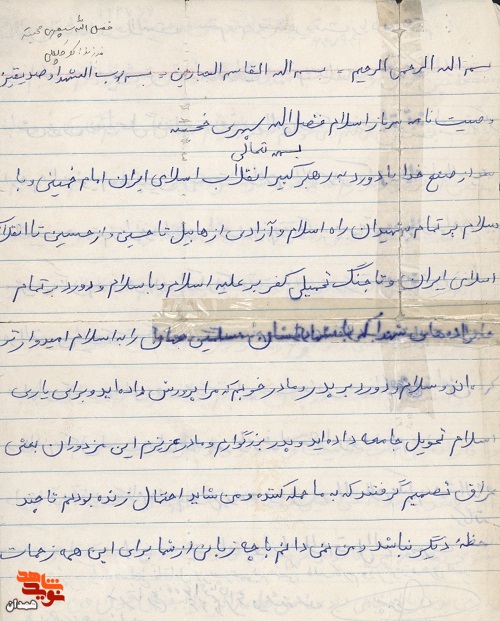 فضل الله سپهری محسنه
فرزند:
بسم الله الرحمن الرحیم - بسم الله القاسم الجبارین - بسم رب الشهداء و صدیقین
وصیت نامه سرباز اسلام فضل الله سپهری محسنه
بسمه تعالی
خدا با درود به رهبر کبیر انقلاب اسلامی ایران امام خمینی و با
سلام بر تمام شهیدان راه اسلام و آزادی از هابیل تا حسین و از حسین تا انقلاب
اسلامی ایران و تا جنگ تحمیلی کفر بر علیه اسلام و با سلام و درود بر تمام
خانواده های شهدا که را به اسلام امیدوارتر
و سلام و درود بر پدر و مادر خوبم که مرا پرورش داده اید و برای یاری
اسلام تحویل جامعه داده اید و پدر بزرگوارم و مادر عزیزم این مزدوران بعثی
عراق تصمیم گرفتند که به ما حمله کنند و من شاید احتمال زنده بودنم تا چند
لحظه دیگر نباشد و من نمی دانم با چه زبانی از شما برای این همه زحمات
نوید شاهد
همدان